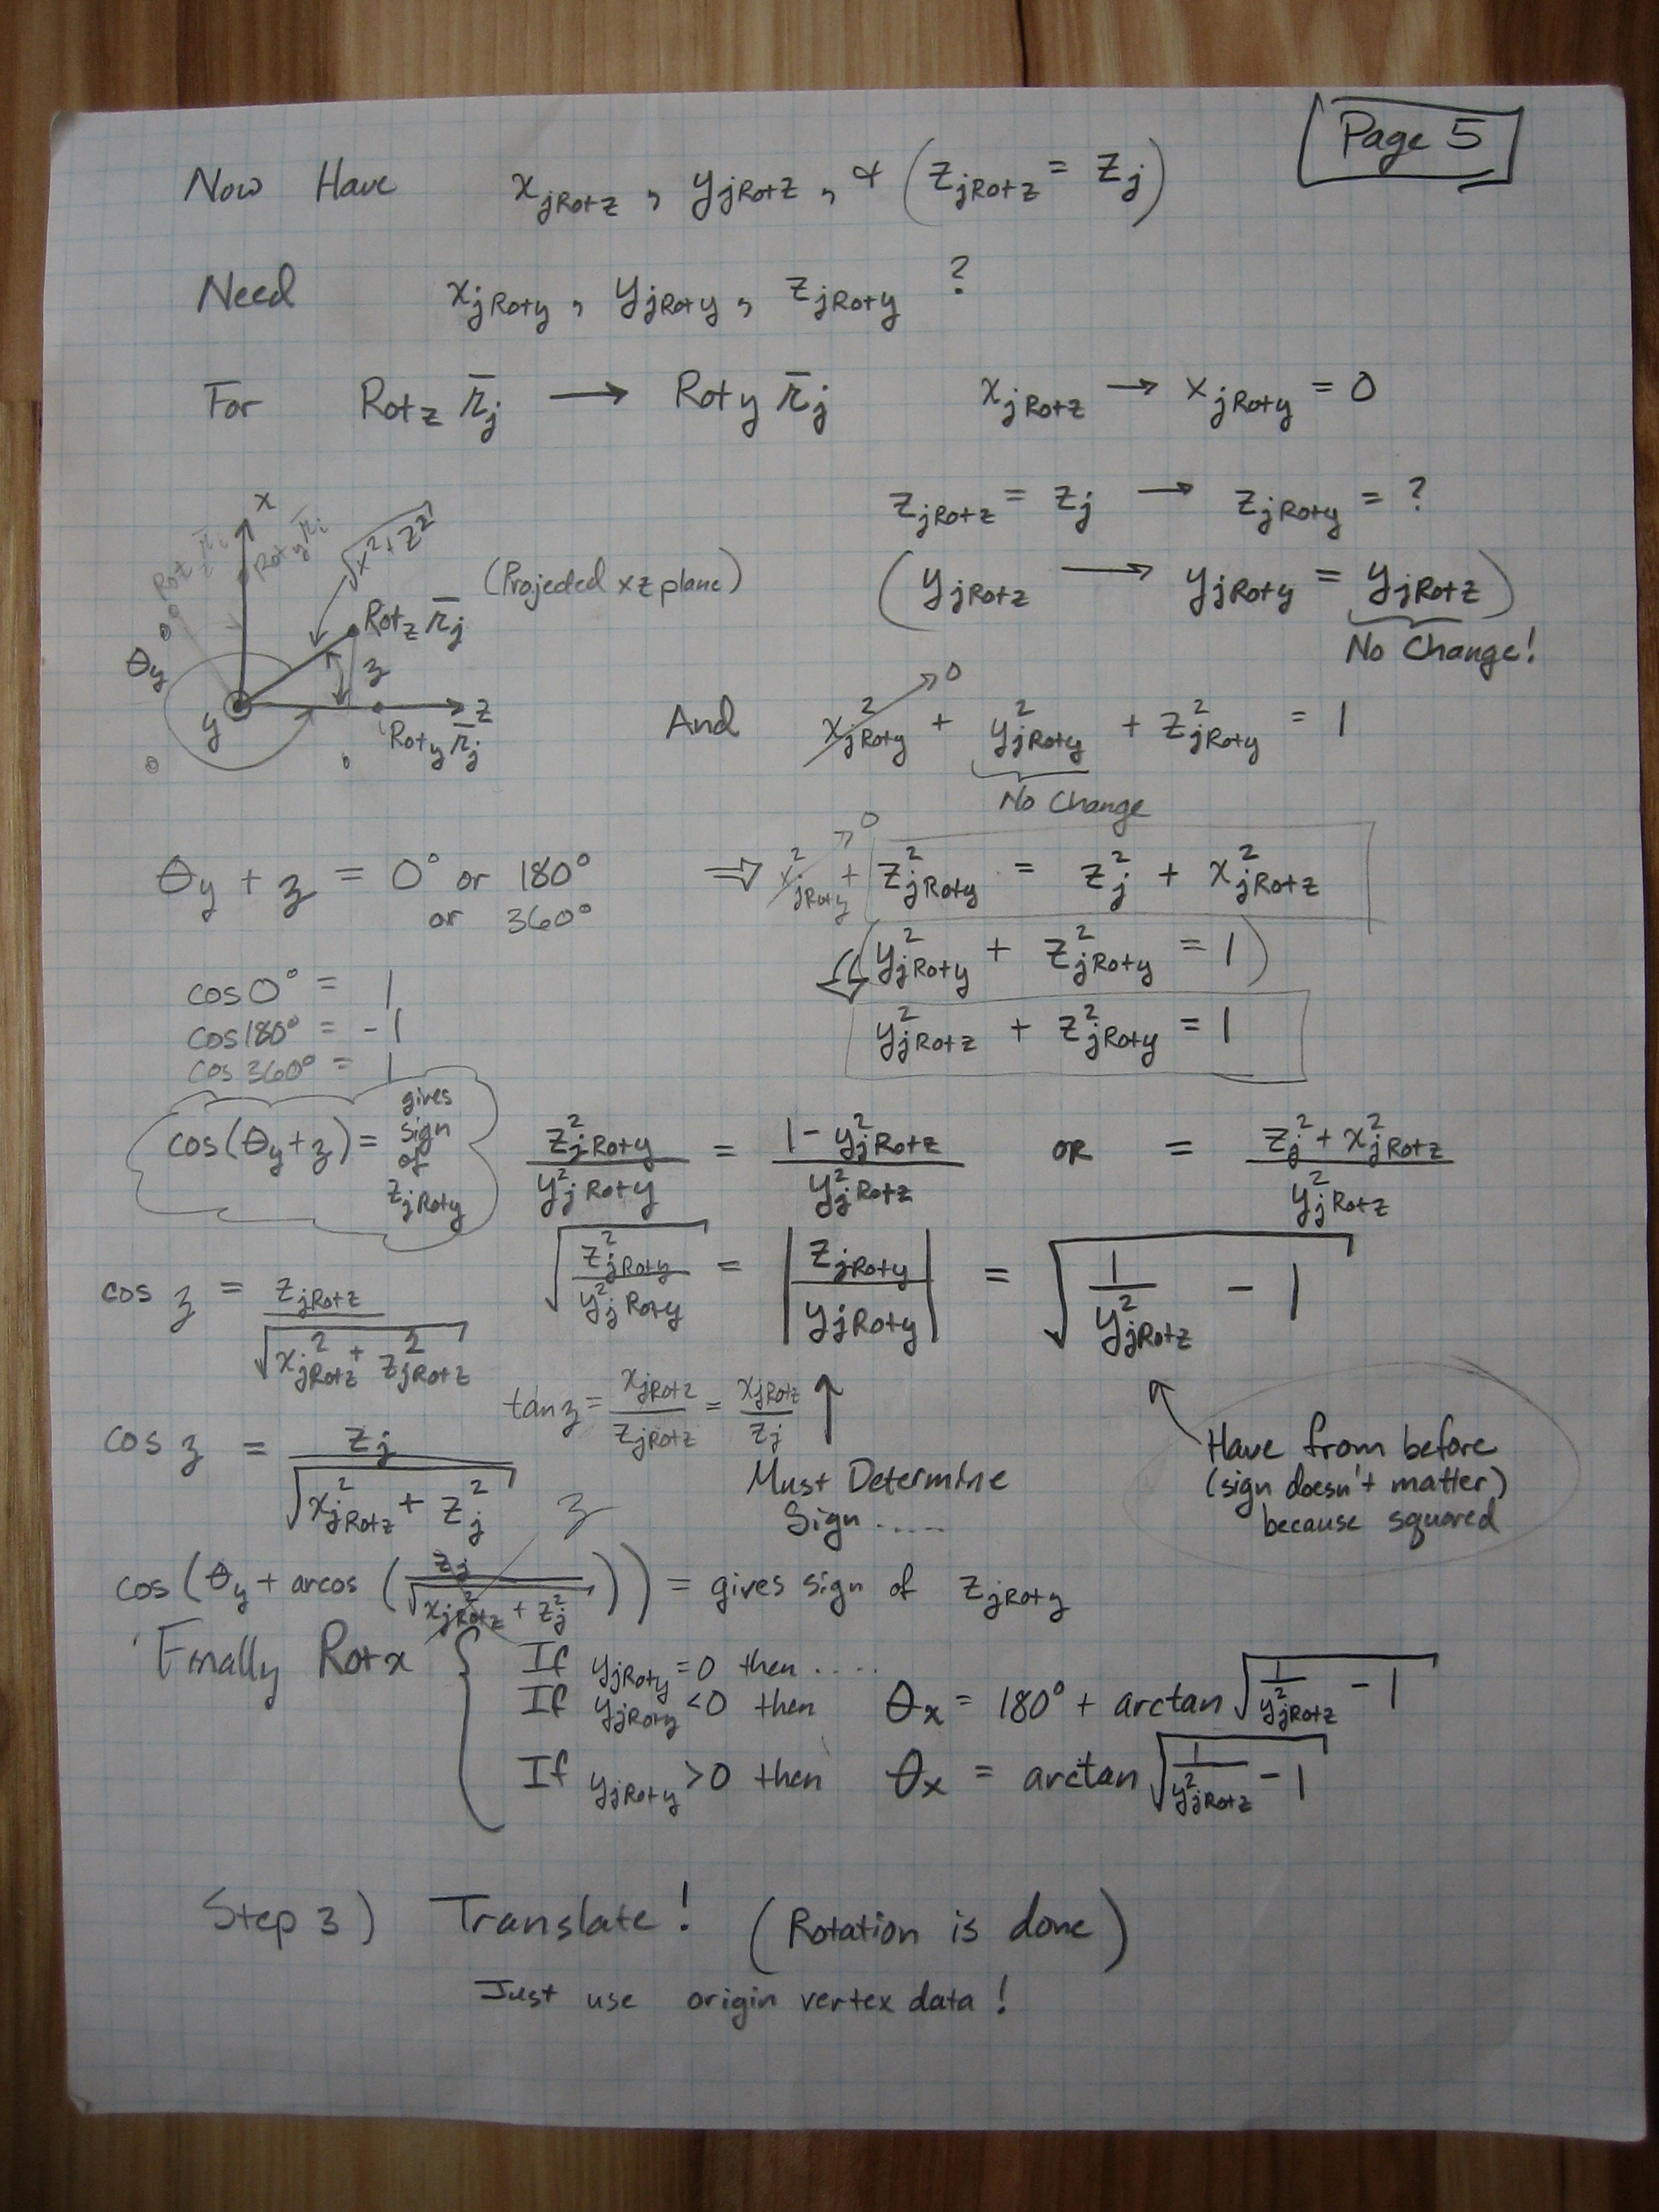 Page 5
Now Have x_jRotz , y_jRotz , & (z_jRotz = z_j)
Need x_jRoty , y_jRoty , z_jRoty ?
For Rotz r̄_j → Roty r̄_j x_jRotz → x_jRoty = 0
z_jRotz = z_j → z_jRoty = ?
(y_jRotz → y_jRoty = y_jRotz)
No Change!
x
Rotz r̄_i
Roty r̄_i
√(x² + z²)
(Projected xz plane)
Rotz r̄_j
θy
z
y
z
Roty r̄_j
And x²_jRoty → 0 + y²_jRoty + z²_jRoty = 1
No Change
θy + z = 0° or 180°
or 360°
⇒ x²_jRoty → 0 + z²_jRoty = z²_j + x²_jRotz
(y²_jRoty + z²_jRoty = 1)
y²_jRotz + z²_jRoty = 1
cos 0° = 1
cos 180° = -1
cos 360° = 1
cos(θy + z) = gives
sign
of
z_jRoty
z²_jRoty / y²_jRoty = (1 - y²_jRotz) / y²_jRotz OR = (z²_j + x²_jRotz) / y²_jRotz
√(z²_jRoty / y²_jRoty) = |z_jRoty / y_jRoty| = √(1 / y²_jRotz - 1)
cos z = z_jRotz / √(x²_jRotz + z²_jRotz)
tan z = x_jRotz / z_jRotz = x_jRotz / z_j
↑
Must Determine
Sign .....
Have from before
(sign doesn't matter)
because squared
cos z = z_j / √(x²_jRotz + z²_j)
z
cos(θy + arcos(z_j / √(x²_jRotz + z²_j))) = gives sign of z_jRoty
Finally Rotx { If y_jRoty = 0 then .....
If y_jRoty < 0 then θx = 180° + arctan √(1 / y²_jRotz - 1)
If y_jRoty > 0 then θx = arctan √(1 / y²_jRotz - 1)
Step 3) Translate! (Rotation is done)
Just use origin vertex data!